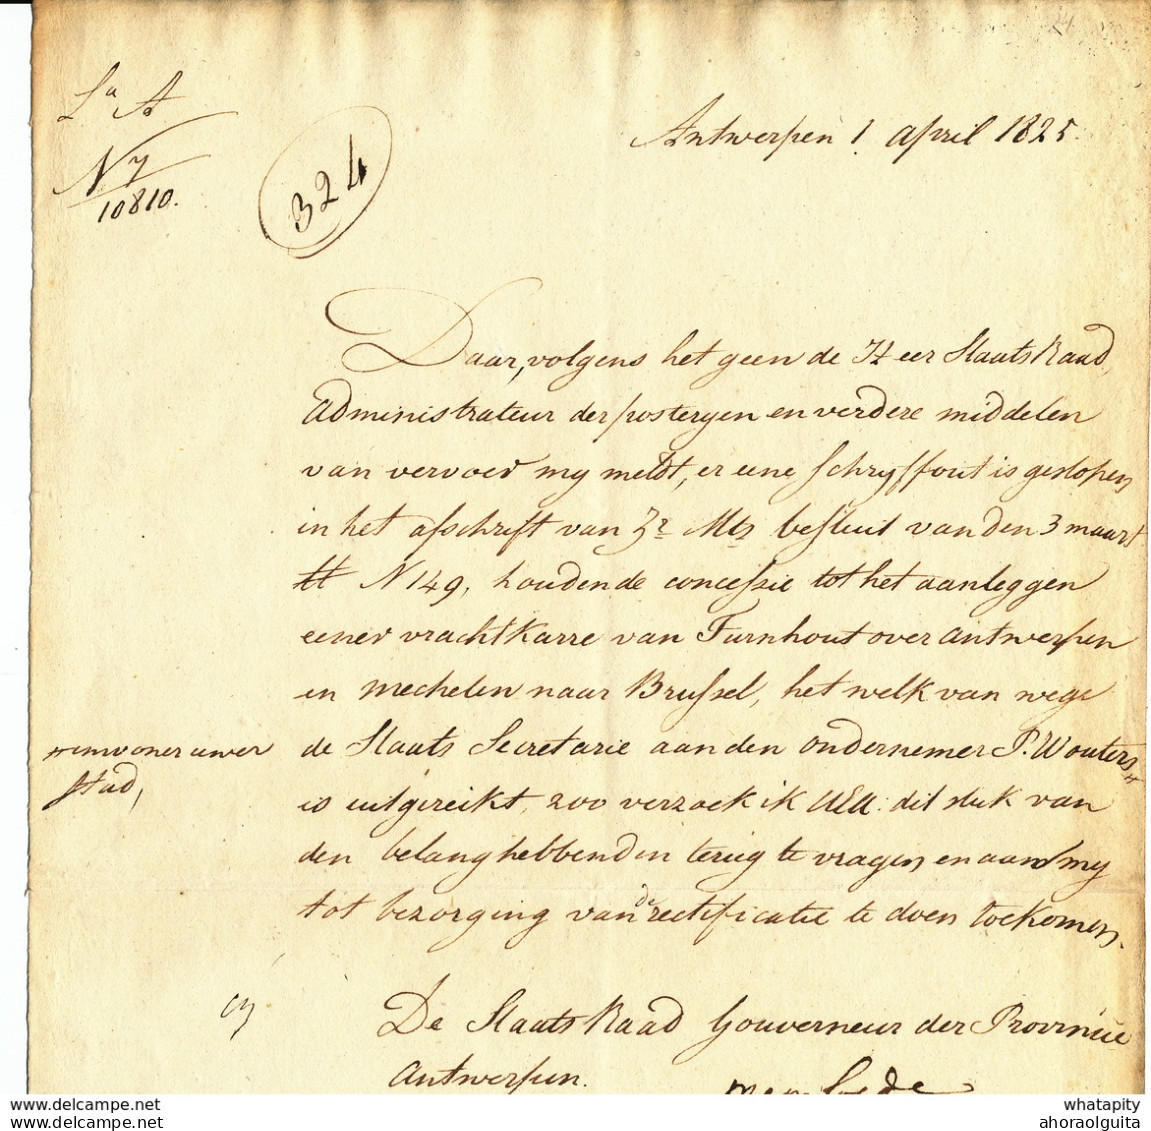 La A
N 7
10810.
324
Antwerpen 1 april 1825.
Daar, volgens het geen de Heer StaatsRaad,
administrateur der posteryen en verdere middelen
van vervoer my meldt, er eene schryffout is geslopen
in het afschrift van Zr Mts besluit van den 3 maart
ll N 149, houdende concessie tot het aanleggen
eener vrachtkarre van Turnhout over antwerpen
en mechelen naar Brussel, het welk van wege
de Staats Secretarie aan den ondernemer P. Wouters
inwoner uwer
stad,
is uitgereikt, zoo verzoek ik UEA: dit stuk van
den belanghebbenden terug te vragen en aan my
tot bezorging van de rectificatie te doen toekomen.
De StaatsRaad Gouverneur der Provincie
antwerpen.
whatapity
ahoraolguita